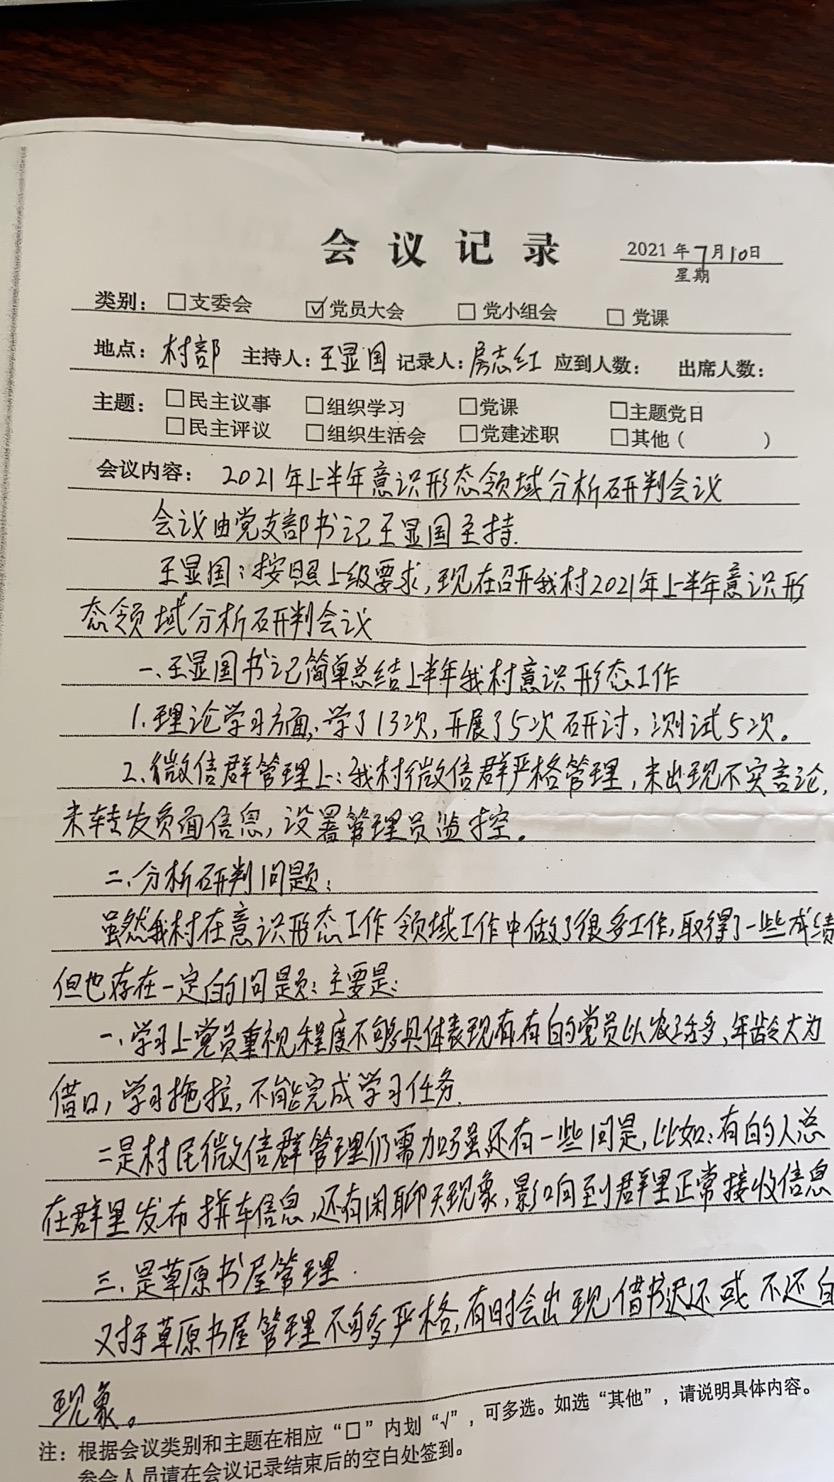 会议记录
2021年7月10日
星期
类别：□支委会 ☑党员大会 □党小组会 □党课
地点：村部 主持人：王显国 记录人：房志红 应到人数： 出席人数：
主题：□民主议事 □组织学习 □党课 □主题党日
□民主评议 □组织生活会 □党建述职 □其他（ ）
会议内容：2021年上半年意识形态领域分析研判会议
会议由党支部书记王显国主持.
王显国：按照上级要求，现在召开我村2021年上半年意识形
态领域分析研判会议
一、王显国书记简单总结上半年我村意识形态工作
1.理论学习方面：学了13次，开展了5次研讨，测试5次。
2.微信群管理上：我村微信群严格管理，未出现不实言论，
未转发负面信息，设署管理员监控。
二、分析研判问题：
虽然我村在意识形态工作领域工作中做了很多工作，取得了一些成绩
但也存在一定的问题：主要是：
一、学习上党员重视程度不够具体表现有有的党员以农活多、年龄大为
借口，学习拖拉，不能完成学习任务.
二是村民微信群管理仍需加强还有一些问是，比如：有的人总
在群里发布拼车信息，还有闲聊天现象，影响到群里正常接收信息
三、是草原书屋管理.
对于草原书屋管理不够严格，有时会出现借书迟还或不还的
现象。
注：根据会议类别和主题在相应“□”内划“√”，可多选。如选“其他”，请说明具体内容。
参会人员请在会议记录结束后的空白处签到。